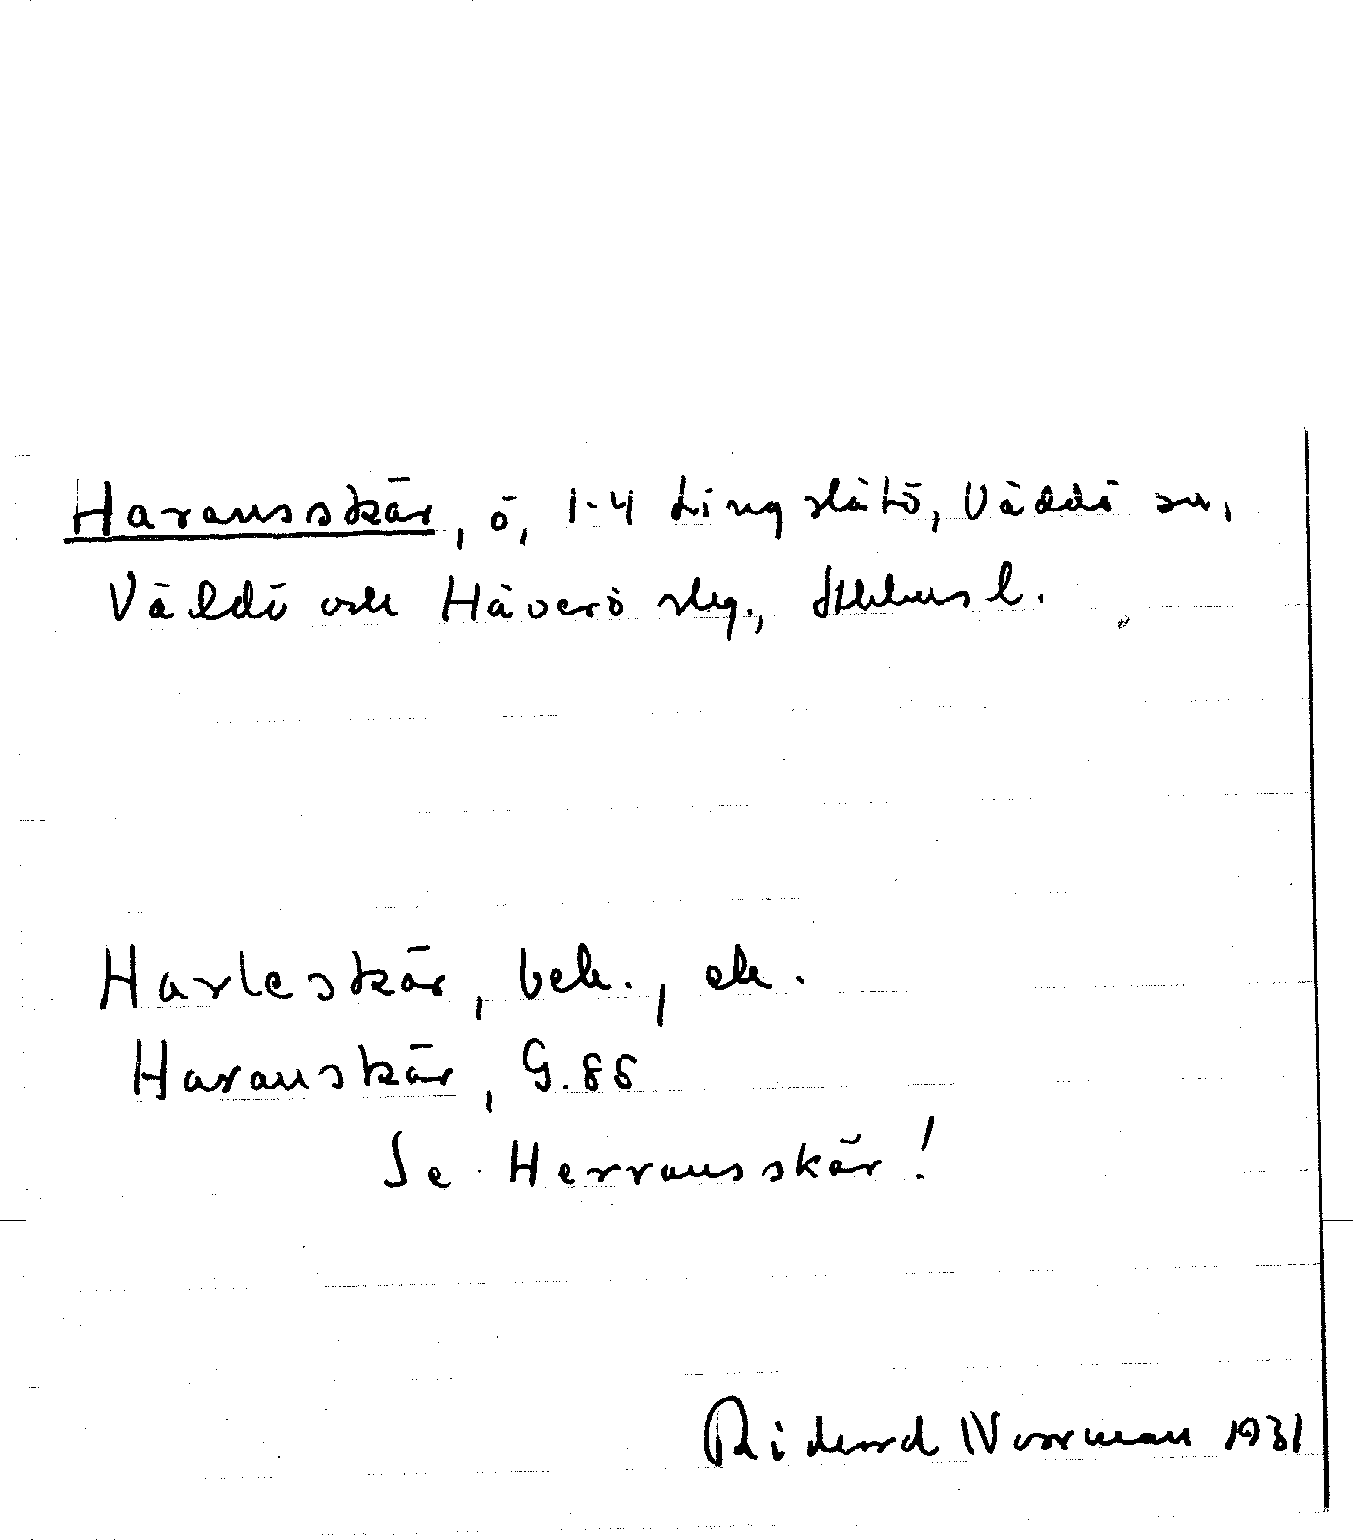 Haransskär, ö, 1-4 Lingslätö, Väddö sn,
Väddö och Häverö slg., Sthlms l.
Harleskär, bek., ek.
Haranskär, G.86
Se Herransskär!
Rickard Norrman 1931